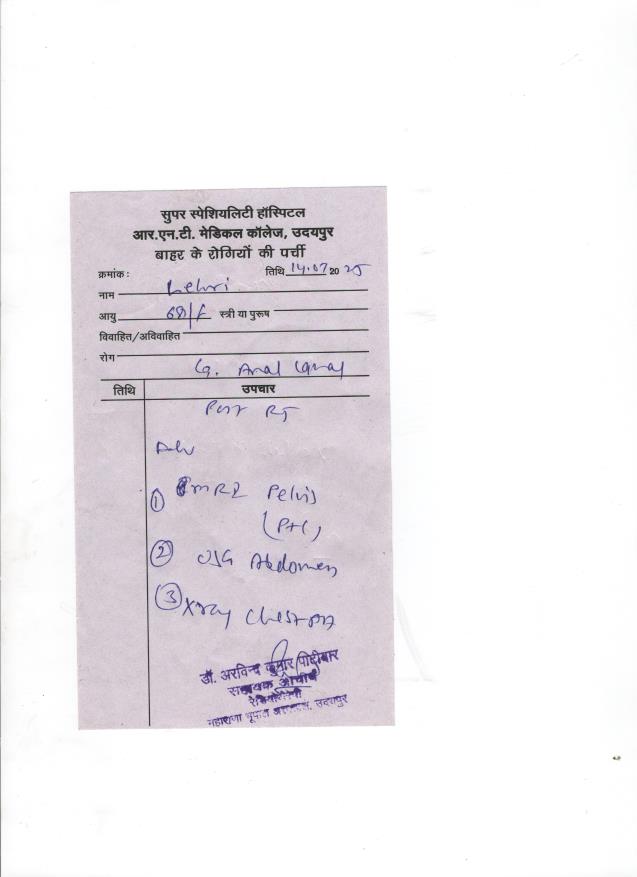 सुपर स्पेशियलिटी हॉस्पिटल
आर.एन.टी. मेडिकल कॉलेज, उदयपुर
बाहर के रोगियों की पर्ची
क्रमांक : तिथि 14.07 20 25
नाम Lehri
आयु 68/F स्त्री या पुरूष
विवाहित/अविवाहित
रोग
Ca. Anal Canal
तिथि उपचार
Post RT
Adv
① MRI Pelvis
(P+C)
② USG Abdomen
③ Xray Chest PA
डॉ. अरविन्द कुमार
सहायक आचार्य
उदयपुर